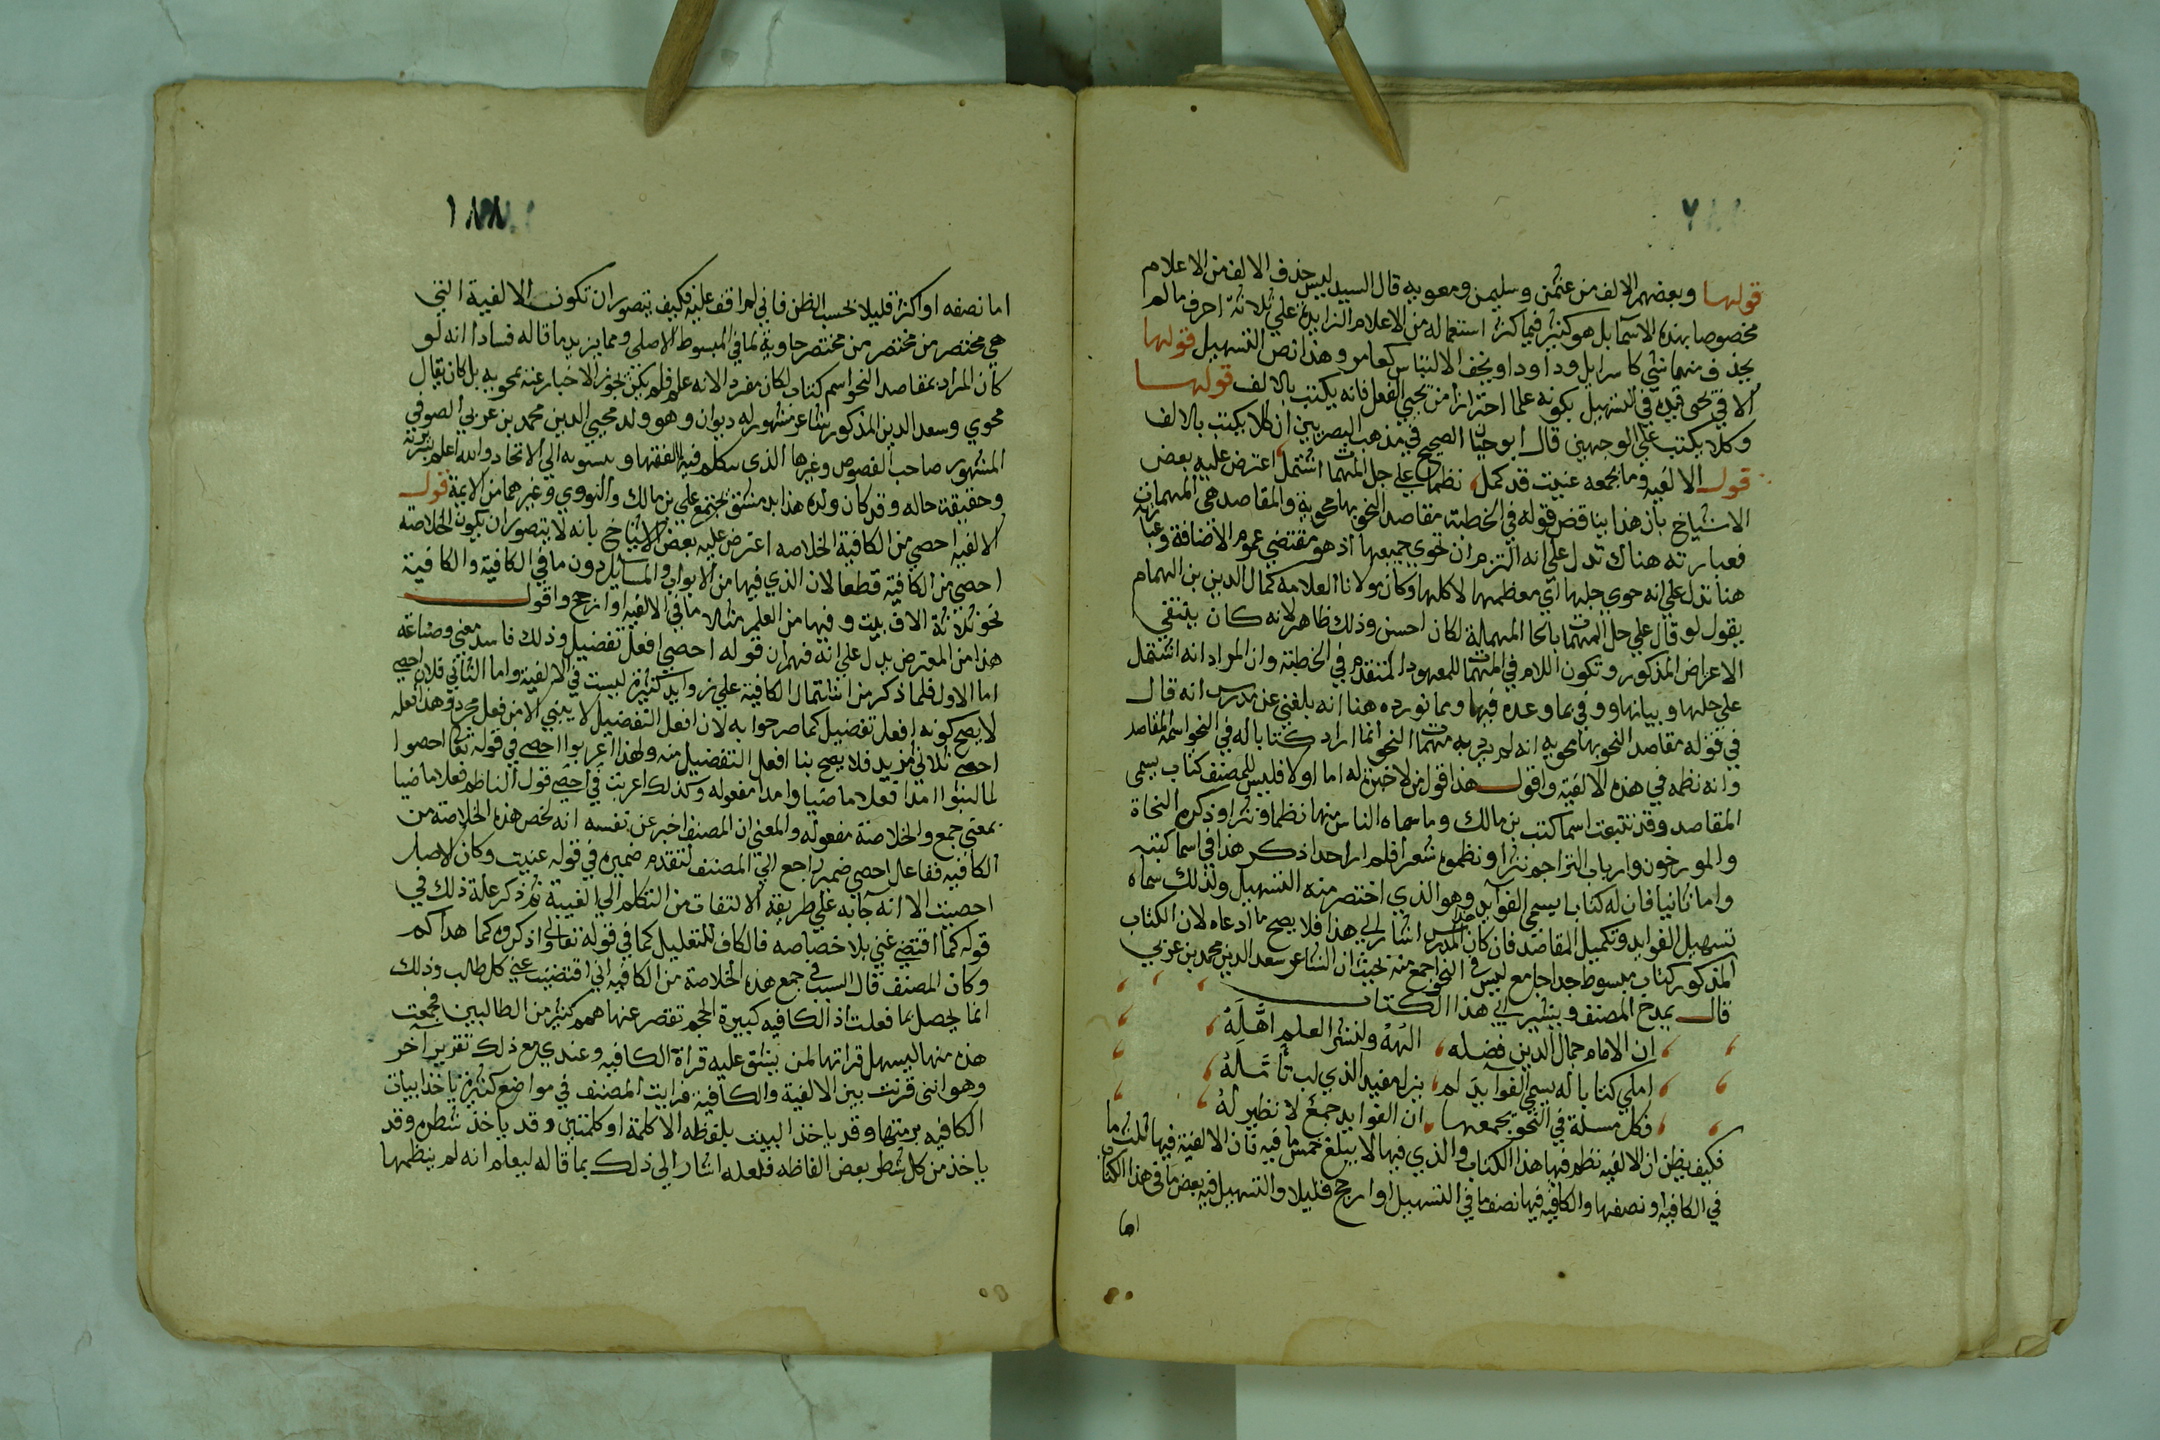 قولها وبعضهم الالف من عثمن وسليمن ومعويه قال السيد ليس حذف الالف من الاعلام
مخصوصا بهذه الاسما بل هو كثير فيما كثر استعماله من الاعلام الزايدة علي ثلاثة احرف ما لم
يحذف منها شي كاسرايل وداود او يخف الالتباس كعامر وهذا نص التسهيل قولها
الا في يحيى قيده في التسهيل بكونه علما احترازا من يحيي الفعل فانه يكتب بالالف قولها
وكلا يكتب علي الوجهين قال ابو حيان الصحيح في مذهب البصريين ان كلا يكتب بالالف
قول الالفيه وما بجمعه عنيت قد كمل نظما علي جل المهمات اشتمل اعترض عليه بعض
الاشياخ بان هذا يناقض قوله في الخطبة مقاصد النحو بها محوية والمقاصد هي المهمات
فعبارته هناك تدل علي انه التزم ان تحوي جميعها اذ هو مقتضي عموم الاضافة وعبارته
هنا تدل علي انه حوي جلها اي معظمها لا كلها وكان مولانا العلامه كمال الدين بن الهمام
يقول لو قال علي جل المهمات بالحا المهملة لكان احسن وذلك ظاهر لانه كان ينتفي
الاعراض المذكور وتكون اللام في المهمات للمعهود المتقدم في الخطبة وان المراد انه اشتمل
علي حلها وبيانها ووفي بما وعده فيها ومما نورده هنا انه بلغني عن مدرس انه قال
في قوله مقاصد النحو بها محويه انه لم يرد به مهمات النحو انما اراد كتابا له في النحو اسمه المقاصد
وانه نظمه في هذه الالفية واقول هذا قول من لا خبرة له اما اولا فليس للمصنف كتاب يسمى
المقاصد وقد تتبعت اسما كتب بن مالك وما سماه الناس منها نظما ونثرا وذكره النحاة
والمورخون وارباب التراجم نثرا ونظموه شعرا فلم ار احدا ذكر هذا في اسما كتبه
واما ثانيا فان له كتابا يسمى الفوايد وهو الذي اختصر منه التسهيل ولذلك سماه
تسهيل الفوايد وتكميل المقاصد فان كان المدرس اشار الي هذا فلا يصح ما ادعاه لان الكتاب
المذكور كتاب مبسوط جدا جامع ليس في النحو اجمع منه بحيث ان الشاعر سعد الدين محمد بن عربي
قال يمدح المصنف ويشير الي هذا الكتاب
ان الامام جمال الدين فضله الهه ولنشر العلم اهله
املي كتابا له يسمى الفوايد لم يزل مفيد الذي لب تامله
فكل مسلة في النحو يجمعها ان الفوايد جمع لا نظير له
فكيف يظن ان الالفيه نظم فيها هذا الكتاب والذي فيها لا يبلغ خمس ما فيه فان الالفية فيها ثلث ما
في الكافيه او نصفها والكافيه فيها نصف ما في التسهيل او ارجح قليلا والتسهيل فيه بعض ما في هذا الكتاب
اما
١٨٨
اما نصفه او اكثر قليلا بحسب الظن فاني لم اقف عليه فكيف يتصور ان تكون الالفية التي
هي مختصر من مختصر من مختصر حاوية لما في المبسوط الاصلي ومما يزيد ما قاله فسادا انه لو
كان المراد بمقاصد النحو اسم كتاب لكان مفردا لانه علم فلم يكن يجوز الاخبار عنه بمحويه بل كان يقال
محوي وسعد الدين المذكور شاعر مشهور له ديوان وهو ولد محيي الدين محمد بن عربي الصوفي
المشهور صاحب الفصوص وغيرها الذي تتكلم فيه الفقها وينسبونه الي الاتحاد والله اعلم بسريرته
وحقيقة حاله وقد كان ولده هذا بدمشق يجتمع علي بن مالك والنووي وغيرهما من الايمة قول
الالفيه احصي من الكافية الخلاصه اعترض عليه بعض الاشياخ بانه لا يتصور ان تكون الخلاصة
احصي من الكافية قطعا لان الذي فيها من الابواب والمسايل دون ما في الكافية والكافية
نحو ثلاثة الاف بيت وفيها من العلم مثلا ما في الالفيه او ارجح واقول
هذا من المعترض يدل علي انه فهم ان قوله احصي افعل تفضيل وذلك فاسد معني وصناعة
اما الاول فلما ذكر من اشتمال الكافية علي زوايد كثيرة ليست في الالفية واما الثاني فلان احصى
لا يصح كونه افعل تفضيل كما صرحوا به لان افعل التفضيل لا يبني الا من فعل مجرد وهذا فعله
احصى ثلاثي مزيد فلا يصح بنا افعل التفضيل منه ولهذا اعربوا احصى في قوله تعالي احصى
لما لبثوا امدا فعلا ماضيا وامدا مفعوله وكذلك اعربت في احصى قول الناظم فعلا ماضيا
بمعنى جمع والخلاصة مفعوله والمعني ان المصنف اخبر عن نفسه انه لخص هذه الخلاصة من
الكافيه ففاعل احصي ضمير راجع الي المصنف لتقدم ضميره في قوله عنيت وكان الاصل
احصيت الا انه جا به علي طريقة الالتفات من التكلم الي الغيبة ثم ذكر علة ذلك في
قوله كما اقتضى غني بلا خصاصه فالكاف للتعليل كما في قوله تعالي واذكروه كما هداكم
وكان المصنف قال السبب في جمع هذه الخلاصة من الكافيه اني اقتضيت غني كل طالب وذلك
انما يحصل بما فعلت اذ الكافيه كبيرة الحجم تقصر عنها همم كثير من الطالبين فجمعت
هذه منها ليسهل قراتها لمن يشق عليه قراة الكافيه وعندي مع ذلك تقرير اخر
وهو انني قرنت بين الالفية والكافية فرايت المصنف في مواضع كثيرة ياخذ ابيات
الكافيه برمتها وقد ياخذ البيت بلفظه الا كلمة او كلمتين وقد ياخذ شطره وقد
ياخذ من كل شطر بعض الفاظه فلعله اشار الي ذلك بما قاله ليعلم انه لم ينظمها